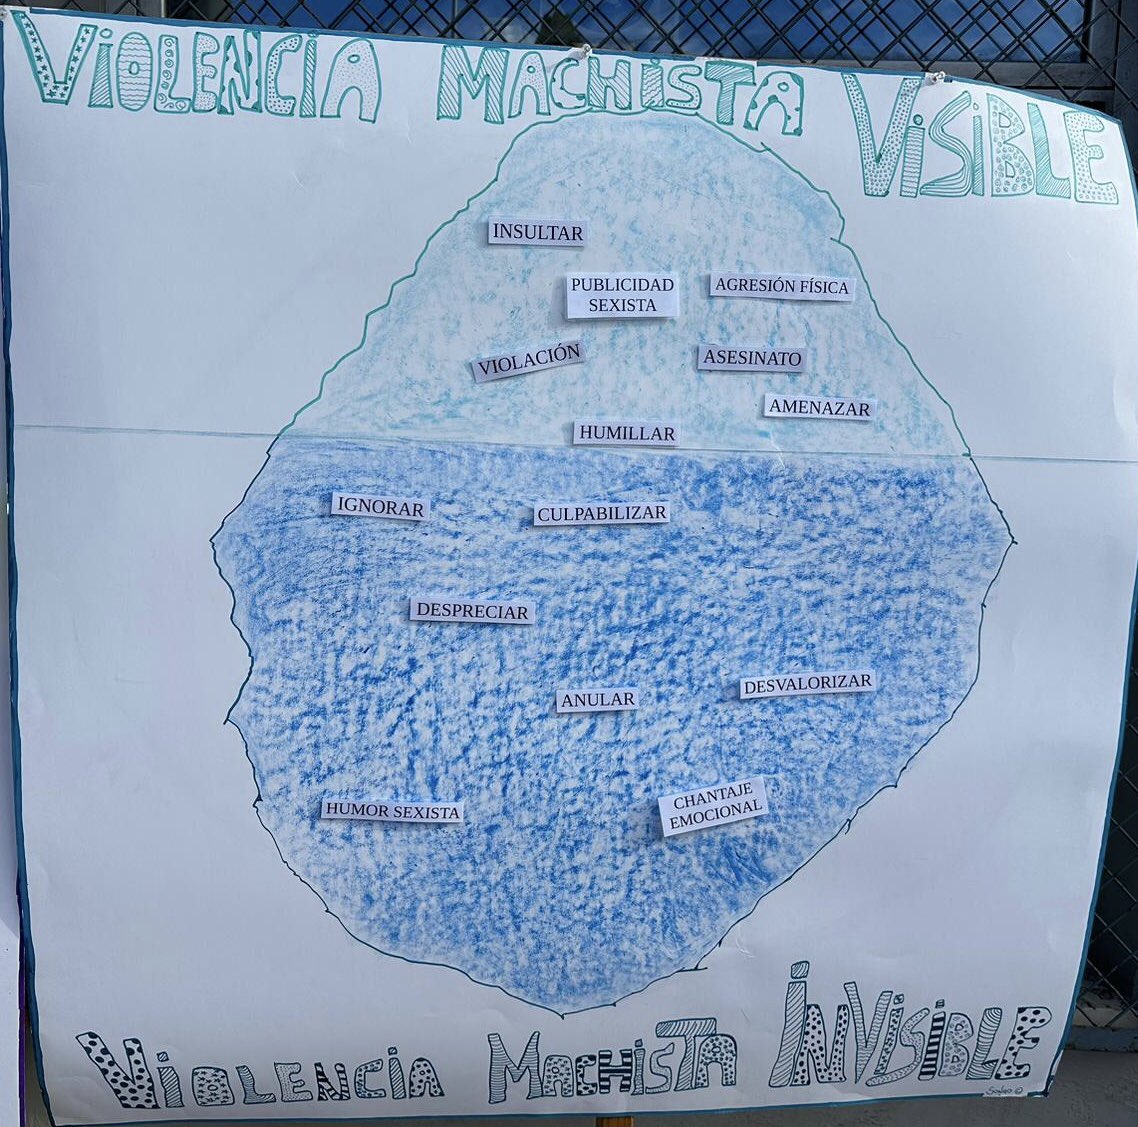 VIOLENCIA MACHISTA VISIBLE
INSULTAR
PUBLICIDAD
SEXISTA
AGRESIÓN FÍSICA
VIOLACIÓN
ASESINATO
AMENAZAR
HUMILLAR
IGNORAR
CULPABILIZAR
DESPRECIAR
ANULAR
DESVALORIZAR
HUMOR SEXISTA
CHANTAJE
EMOCIONAL
VIOLENCIA MACHISTA INVISIBLE